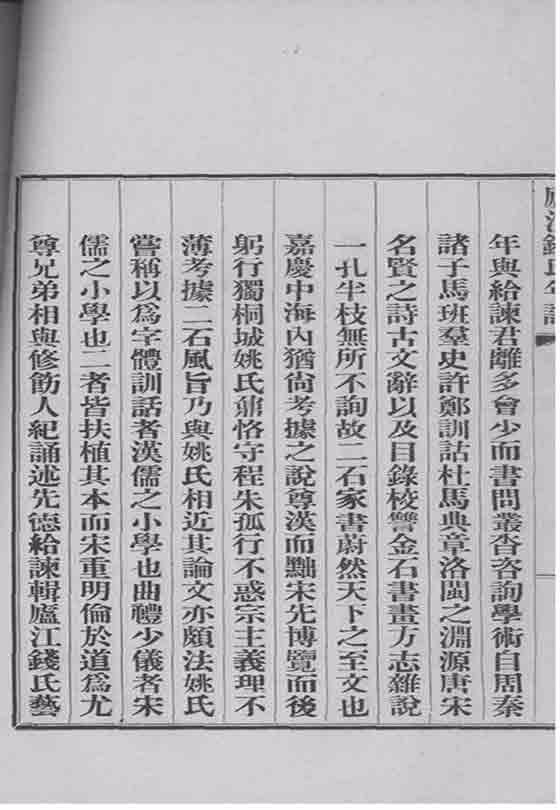 廬江錢氏年譜
年與給諫君離多會少而書問叢沓咨詢學術自周秦
諸子馬班羣史許鄭訓詁杜馬典章洛閩之淵源唐宋
名賢之詩古文辭以及目錄校讐金石書畫方志雜說
一孔半枝無所不詢故二石家書蔚然天下之至文也
嘉慶中海內猶尙考據之說尊漢而黜宋先博覽而後
躬行獨桐城姚氏鼐恪守程朱孤行不惑宗主義理不
薄考據二石風旨乃與姚氏相近其論文亦頗法姚氏
嘗稱以爲字體訓話者漢儒之小學也曲禮少儀者宋
儒之小學也二者皆扶植其本而宋重明倫於道爲尤
尊兄弟相與修飭人紀誦述先德給諫輯廬江錢氏藝